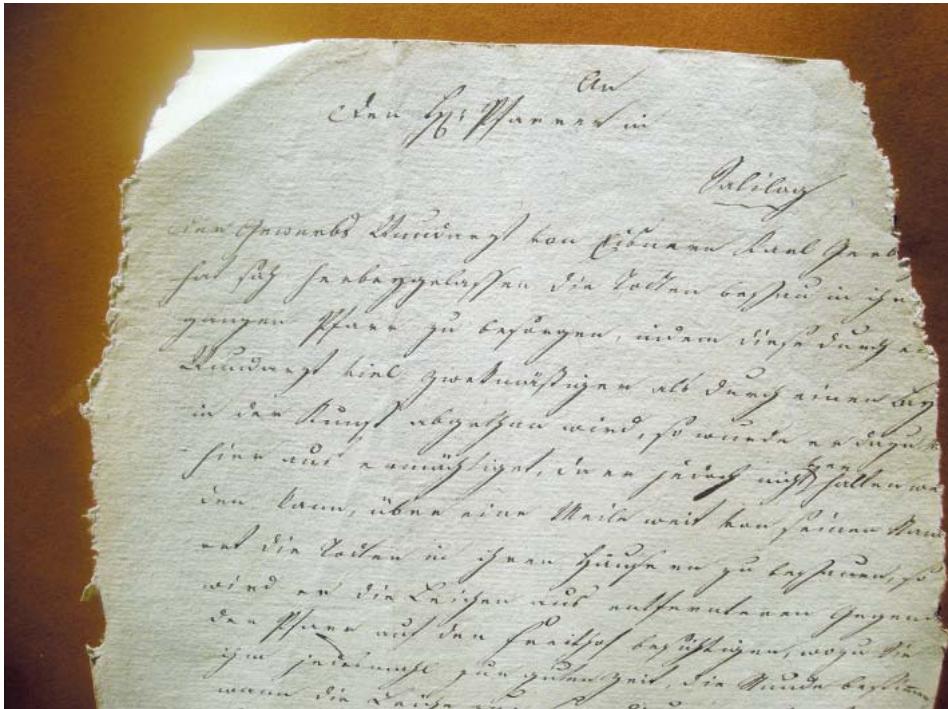 An
Den H: Pfarrer in
Salilog
Der Gewerbs Wundarzt von Eisnern Karl Gerb
hat sich herbeygelassen die Todten beschau in ihr
ganzen Pfarr zu besorgen, indem diese durch ei
Wundarzt viel zwekmäßiger als durch einen
in der Kunst abgethan wird, so wurde er dazu
hier aus ermächtiget, da er jedoch nicht halten wer
den kann, über eine Meile weit von seinen Stand
ort die Todten in ihren Häusern zu beschauen, so
wird er die Leichen aus entfernteren Gegend
der Pfarr auf den Freithof besichtigen, wozu Sie
ihm jedesmahl zur guten Zeit, die Stunde bestimmen
wann die Leiche